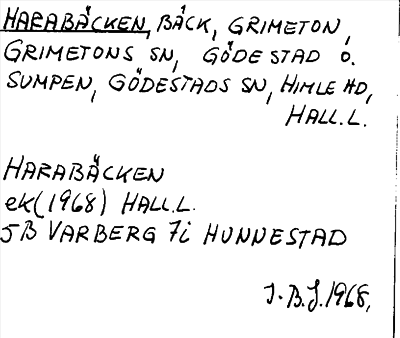 HARABÄCKEN, BÄCK, GRIMETON,
GRIMETONS SN, GÖDESTAD O.
SUMPEN, GÖDESTADS SN, HIMLE HD,
HALL.L.
HARABÄCKEN
ek(1968) HALL.L.
5B VARBERG 7i HUNNESTAD
J.B.J. 1968,